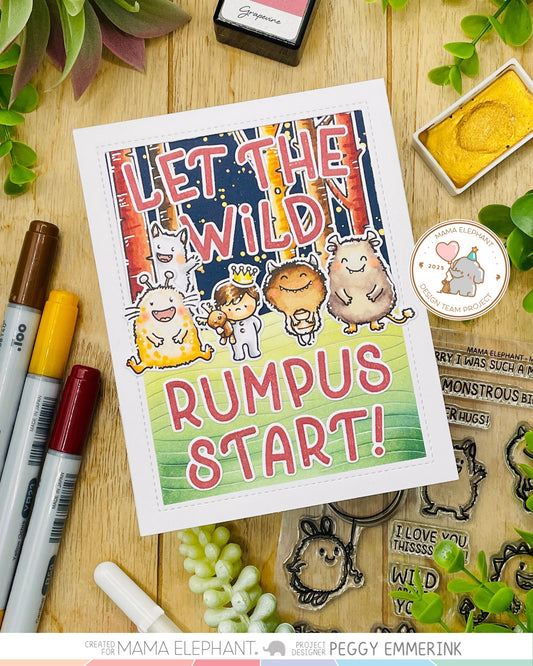 Grapevine
LET THE
WiLD
RUMPUS
START!
MAMA ELEPHANT
2025
DESIGN TEAM PROJECT
MAMA ELEPHANT
RRY I WAS SUCH A M
MONSTROUS BI
ER HUGS!
I LOVE YOU,
THISSSS
WILD
YO
100
CREATED FOR MAMA ELEPHANT
PROJECT DESIGNER PEGGY EMMERINK